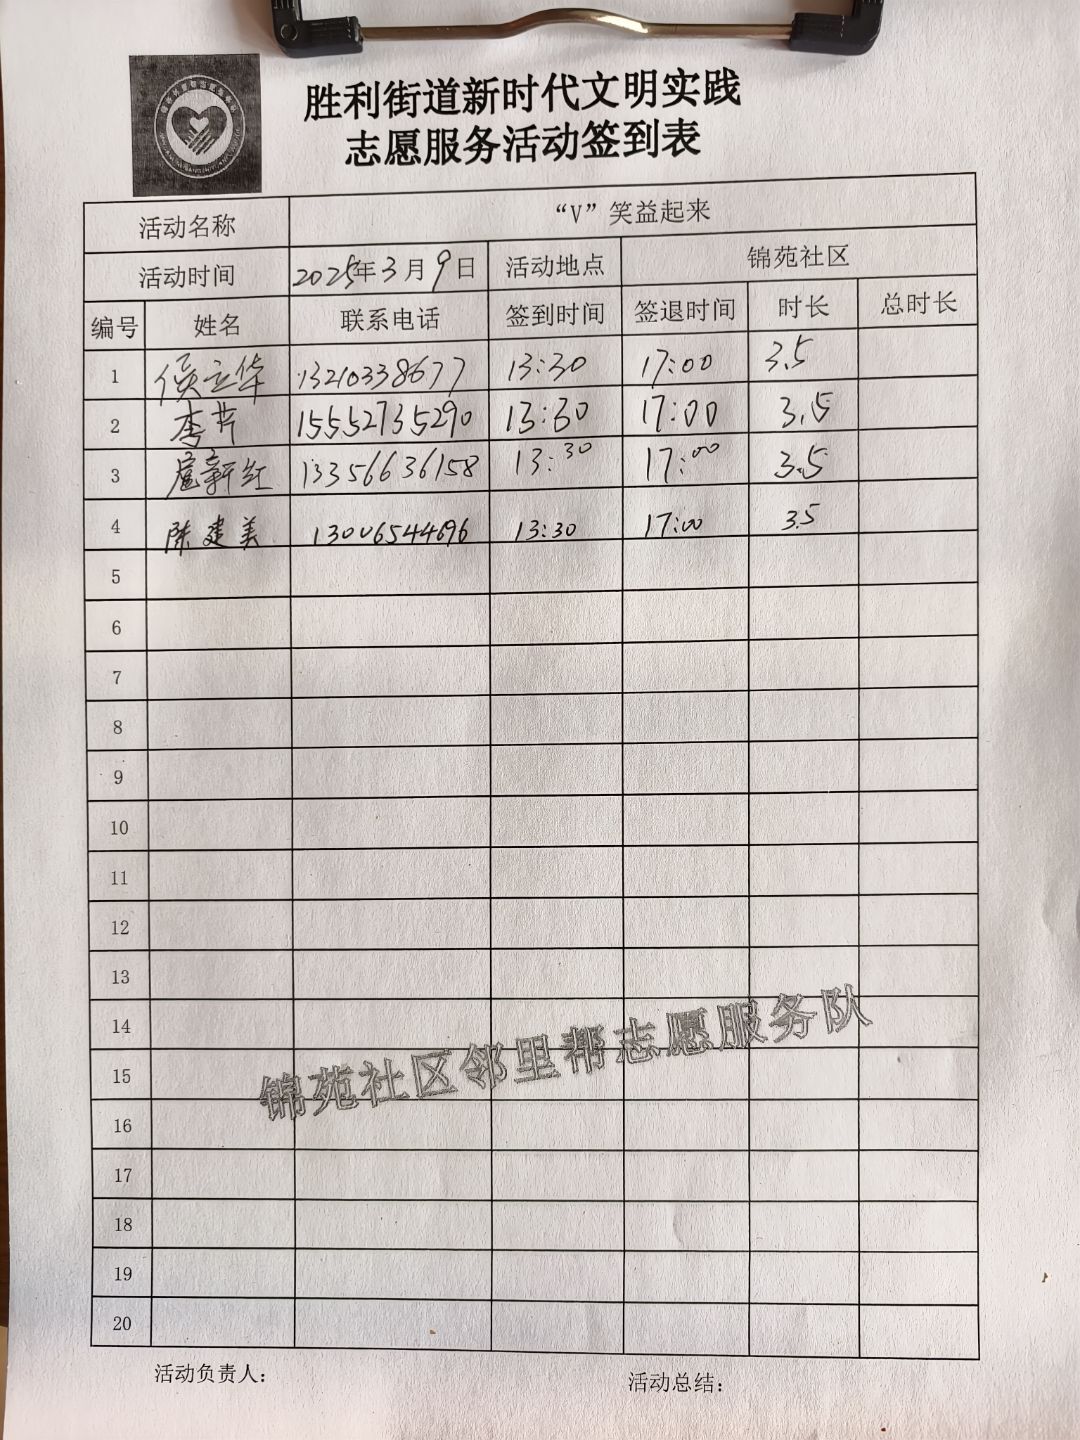 胜利街道新时代文明实践
志愿服务活动签到表
活动名称 “V”笑益起来
活动时间 2025年3月9日 活动地点 锦苑社区
编号 姓名 联系电话 签到时间 签退时间 时长 总时长
1 侯立华 13210338677 13:30 17:00 3.5
2 李芹 15552735290 13:30 17:00 3.5
3 扈新红 13356636158 13:30 17:00 3.5
4 陈建美 13006544696 13:30 17:00 3.5
5
6
7
8
9
10
11
12
13
14
15
16
17
18
19
20
锦苑社区邻里帮志愿服务队
活动负责人： 活动总结：